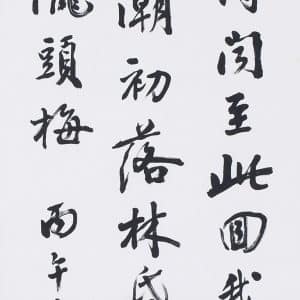 聞至此回我
潮初落林昏
隴頭梅 丙午